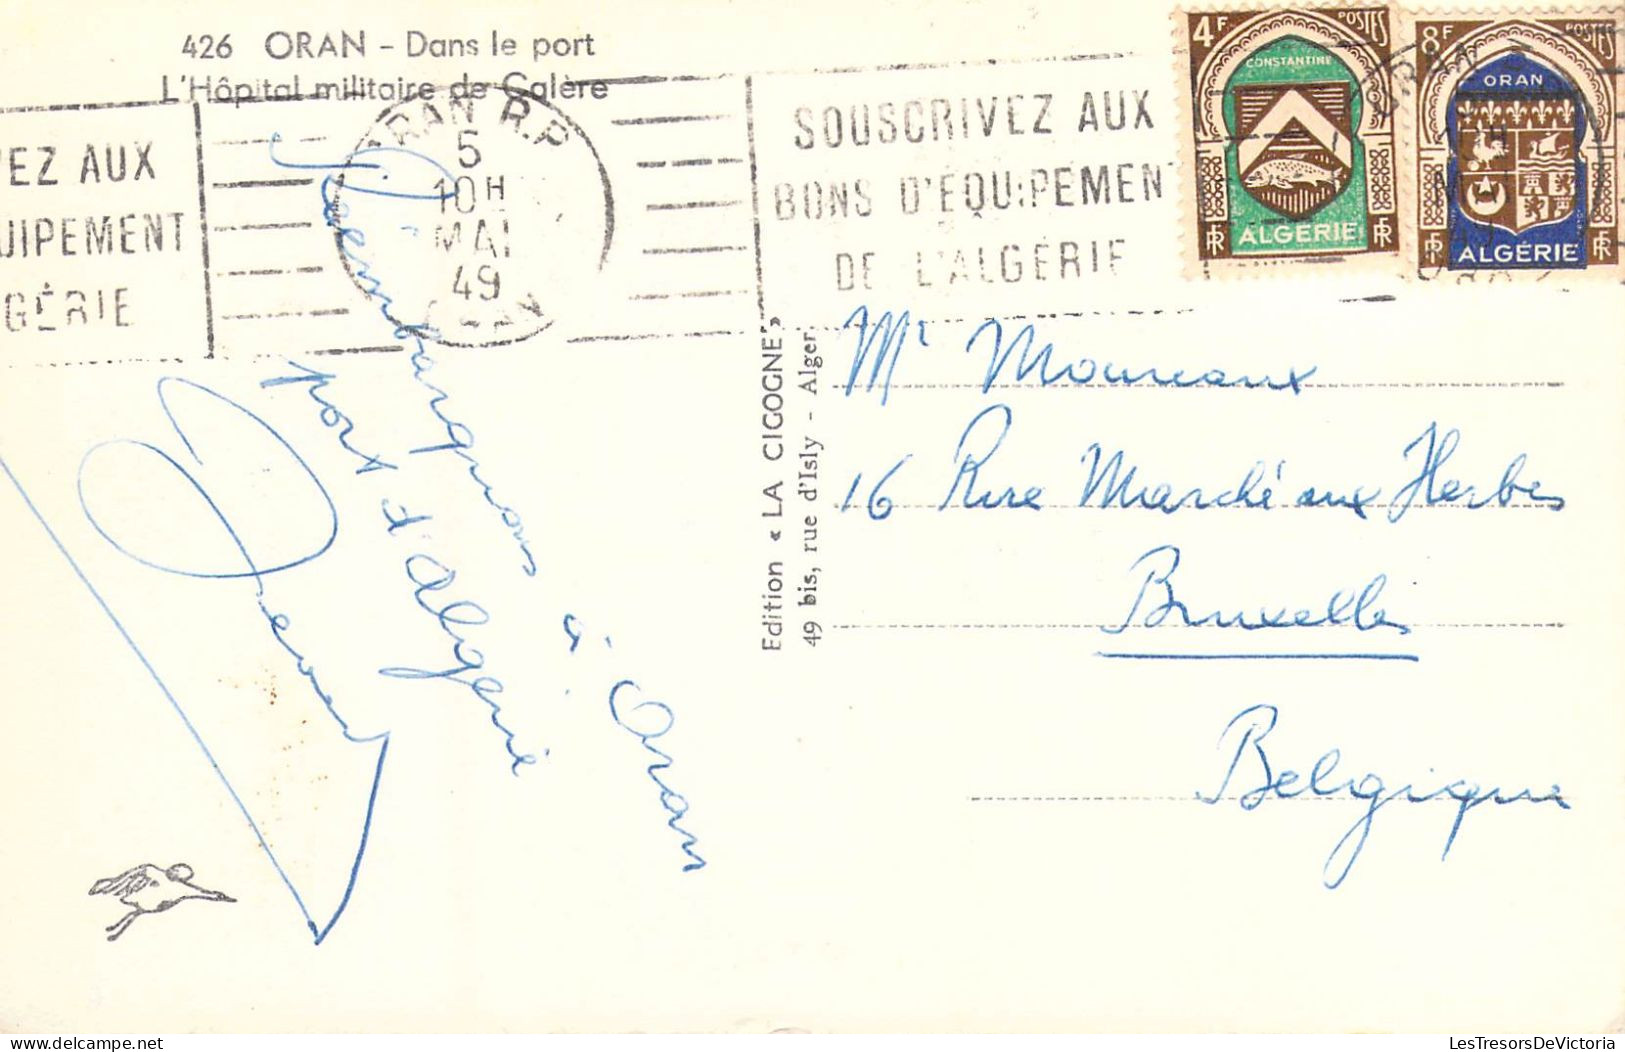 426 ORAN - Dans le port
L'Hôpital militaire de Galère
VEZ AUX
UIPEMENT
GÉRIE
ORAN R.P.
5
10H
MAI
49
ORAN
SOUSCRIVEZ AUX
BONS D'ÉQUIPEMENT
DE L'ALGÉRIE
4F POSTES
CONSTANTINE
ALGERIE
RF RF
8F POSTES
ORAN
ALGÉRIE
RF RF
Réembarquons à Oran
port d'Algérie
Edition « LA CIGOGNE »
49 bis, rue d'Isly - Alger
Mr Moureaux
16 Rue Marché aux Herbes
Bruxelles
Belgique
LesTresorsDeVictoria